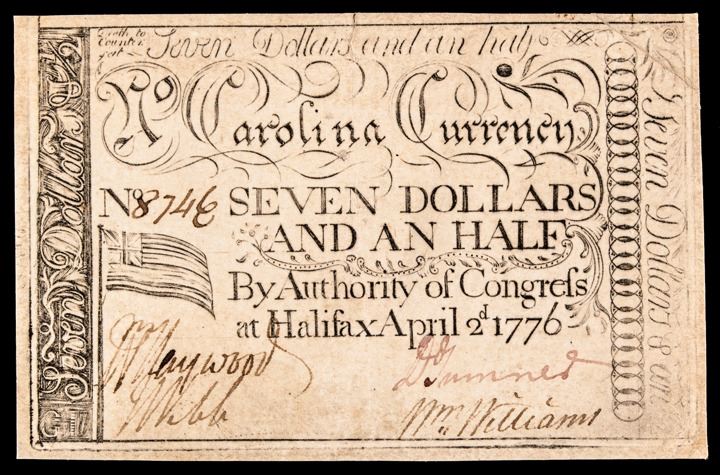 Death to
Counter
feit
Seven Dollars and an half
No Carolina Currency
No 8746 SEVEN DOLLARS
AND AN HALF
By Authority of Congreſs
at Halifax April 2d. 1776
Wm Haywood
J Webb
Sumner
Wm. Williams
Seven Dollars &
Seven Dollars &